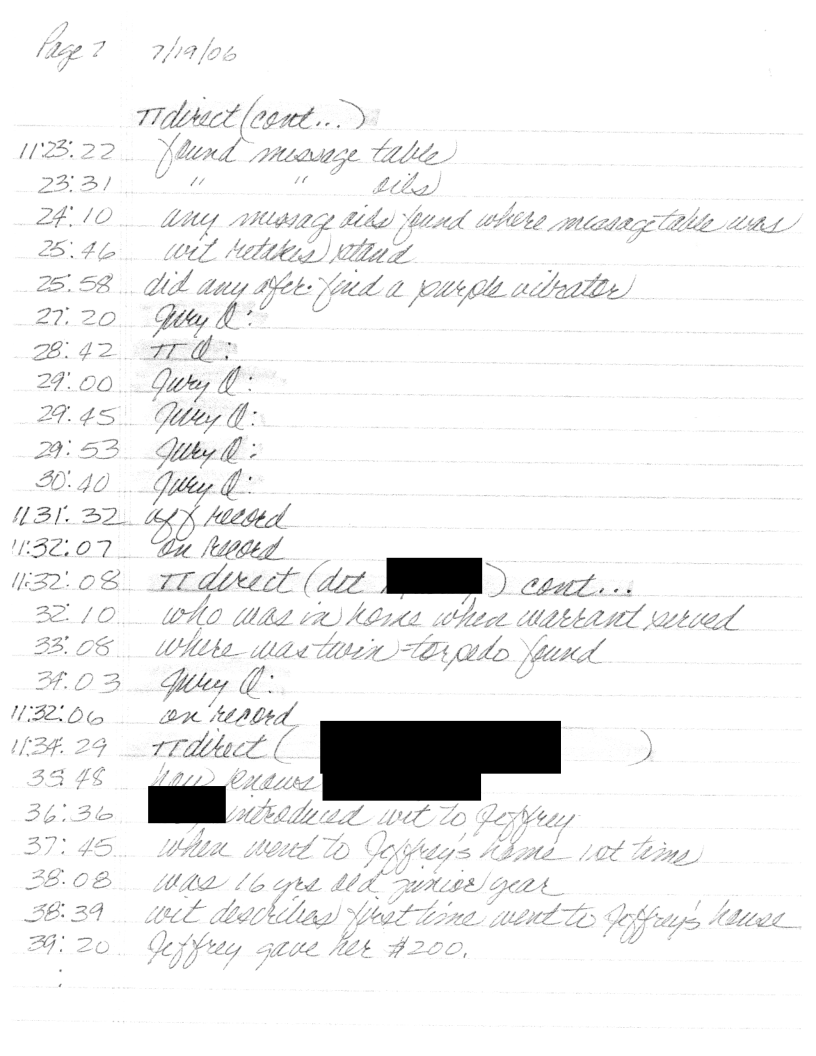 Page 7 7/19/06
π direct (cont...)
11:23:22 found message table
23:31 " " oils
24:10 any message oils found where message table was
25:46 wit retakes stand
25:58 did any ofcr. find a purple vibrator
27:20 Jury Q:
28:42 π Q:
29:00 Jury Q:
29:45 Jury Q:
29:53 Jury Q:
30:40 Jury Q:
11:31:32 off record
11:32:07 on record
11:32:08 π direct (det ) cont...
32:10 who was in home when warrant served
33:08 where was twin torpedo found
34:03 Jury Q:
11:32:06 on record
11:34:29 π direct ( )
35:48 how knows
36:36 introduced wit to Jeffrey
37:45 when went to Jeffrey's home 1st time
38:08 was 16 yrs old junior year
38:39 wit describes first time went to Jeffrey's house
39:20 Jeffrey gave her $200.
: